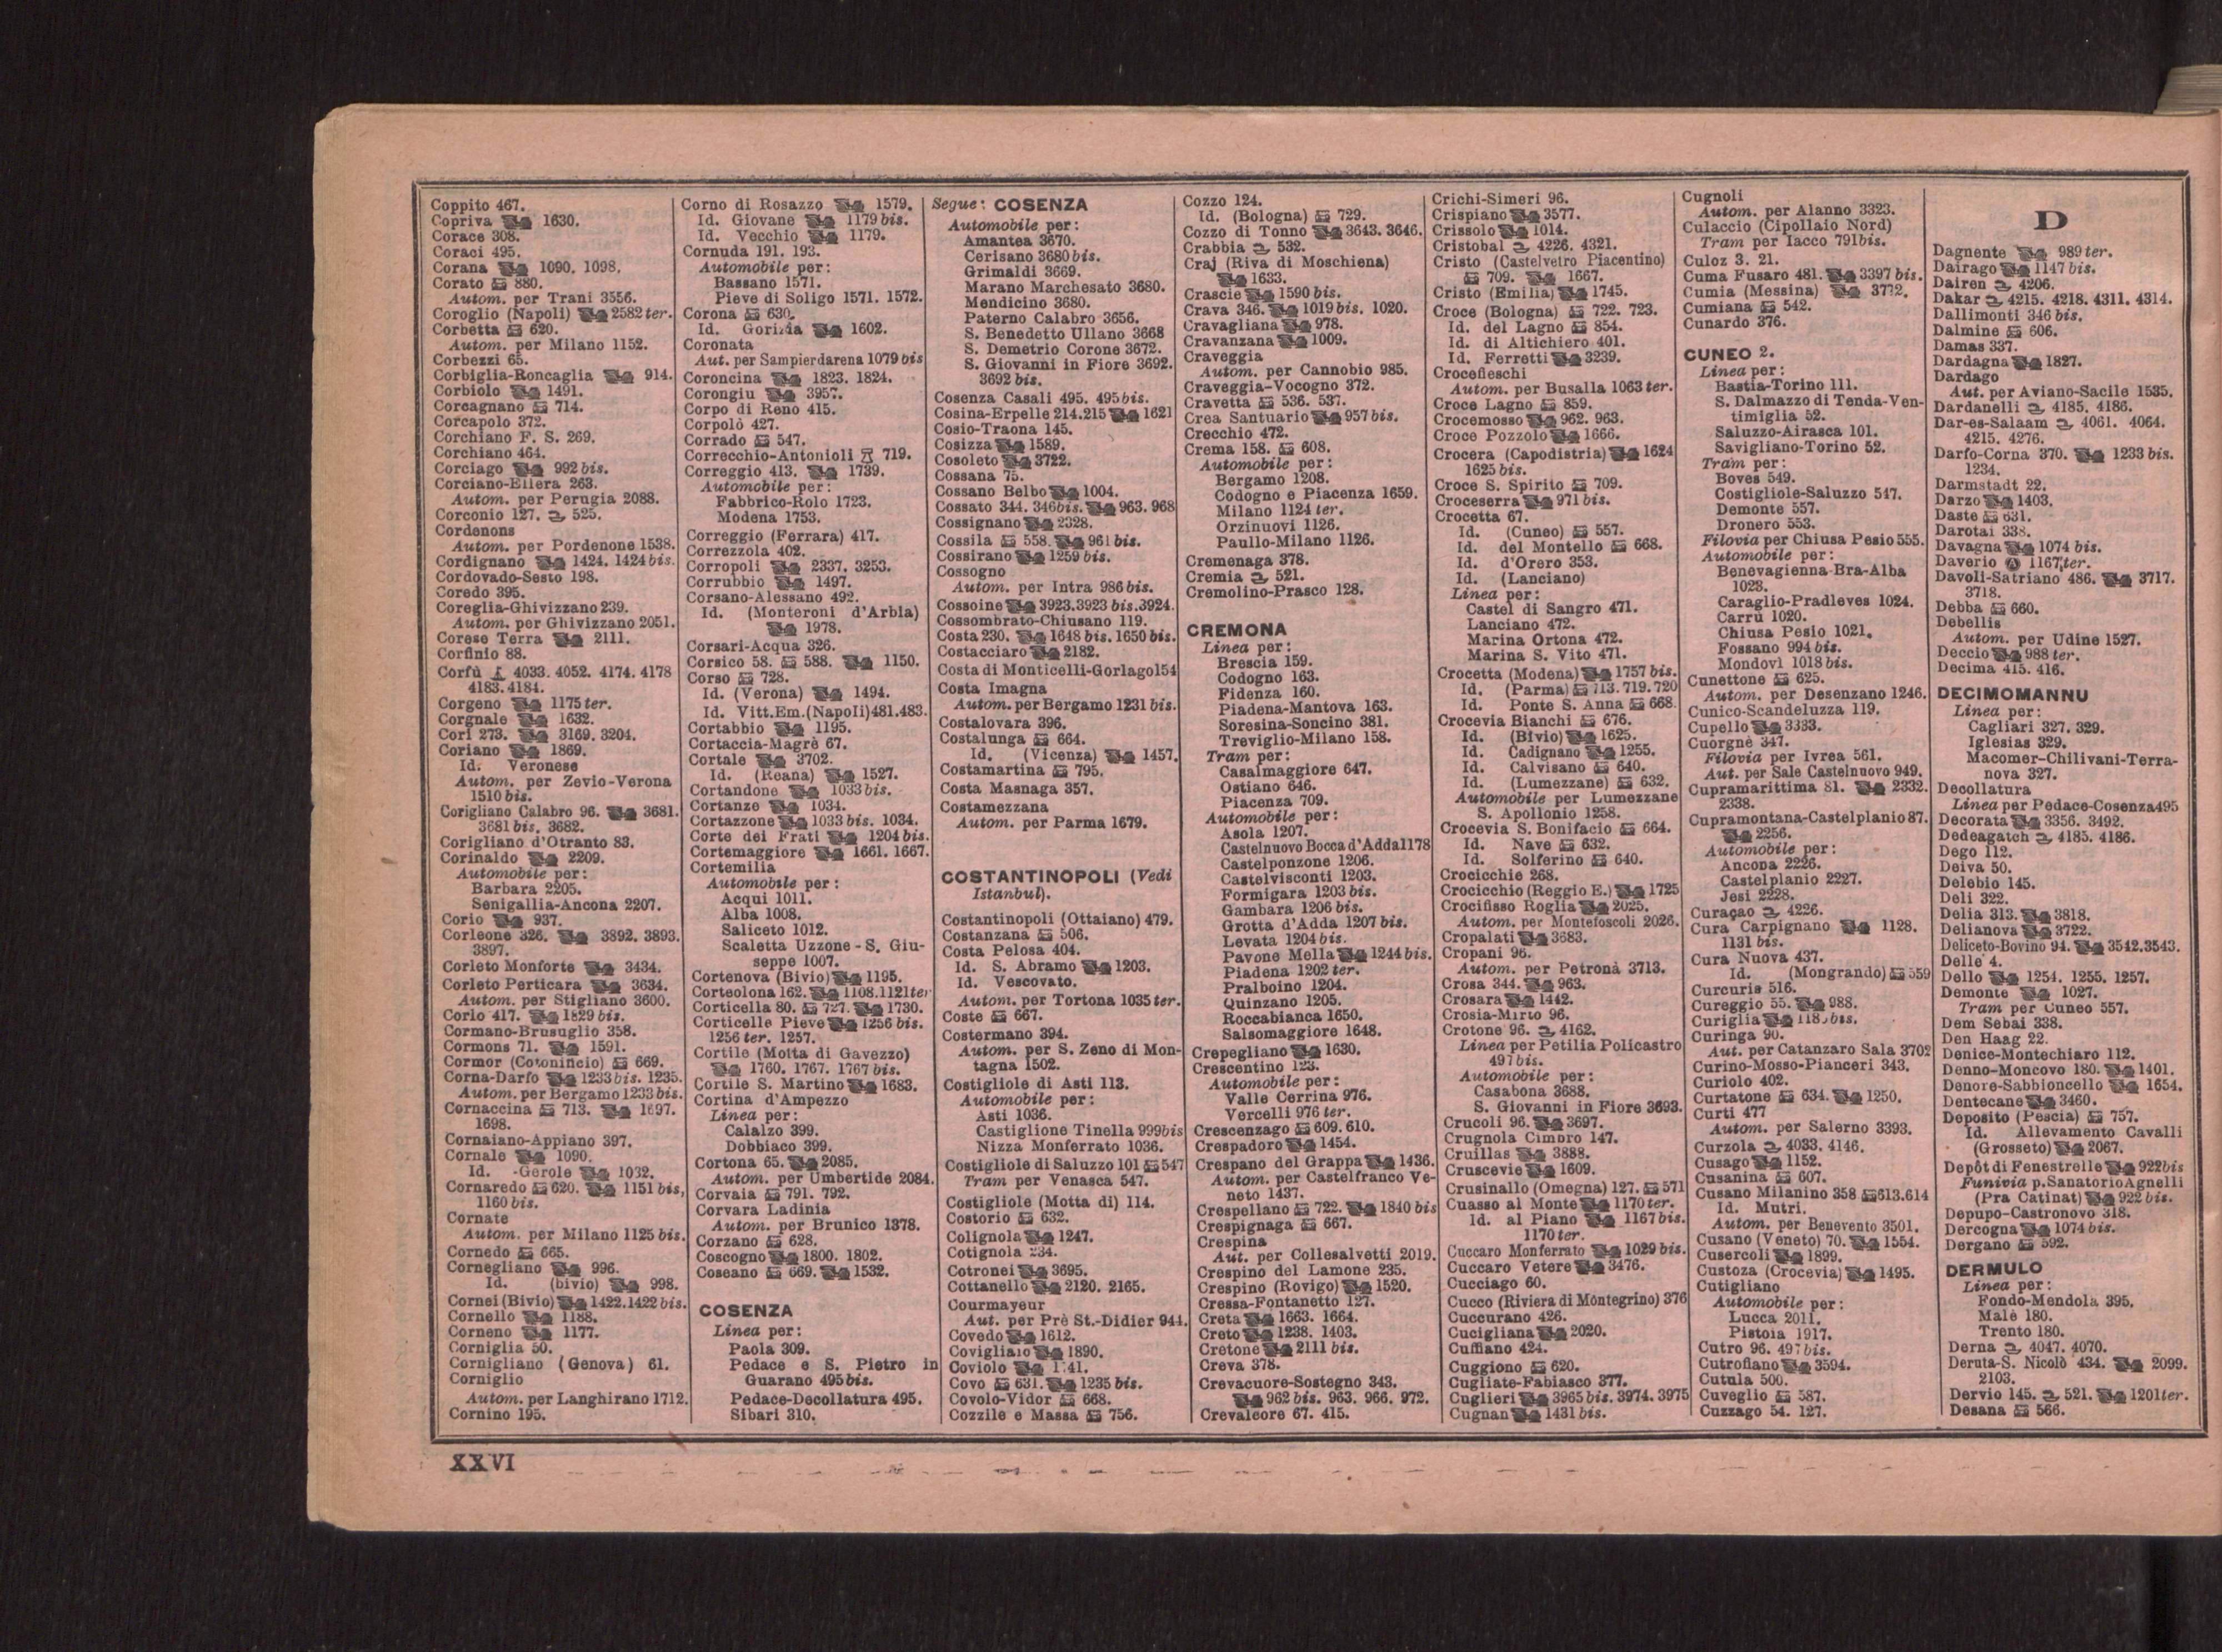 Coppito 467.
Copriva 1630.
Corace 308.
Coraci 495.
Corana 1090. 1098.
Corato 880.
Autom. per Trani 3556.
Coroglio (Napoli) 2582 ter.
Corbetta 620.
Autom. per Milano 1152.
Corbezzi 65.
Corbiglia-Roncaglia 914.
Corbiolo 1491.
Corcagnano 714.
Corcapolo 372.
Corchiano F. S. 269.
Corchiano 464.
Corciago 992 bis.
Corciano-Ellera 263.
Autom. per Perugia 2088.
Corconio 127. 525.
Cordenons
Autom. per Pordenone 1538.
Cordignano 1424. 1424 bis.
Cordovado-Sesto 198.
Coredo 395.
Coreglia-Ghivizzano 239.
Autom. per Ghivizzano 2051.
Corese Terra 2111.
Corfinio 88.
Corfù 4033. 4052. 4174. 4178
4183. 4184.
Corgeno 1175 ter.
Corgnale 1632.
Cori 273. 3169. 3204.
Coriano 1869.
Id. Veronese
Autom. per Zevio-Verona
1510 bis.
Corigliano Calabro 96. 3681.
3681 bis. 3682.
Corigliano d'Otranto 83.
Corinaldo 2209.
Automobile per:
Barbara 2205.
Senigallia-Ancona 2207.
Corio 937.
Corleone 326. 3892. 3893.
3897.
Corleto Monforte 3434.
Corleto Perticara 3634.
Autom. per Stigliano 3600.
Corlo 417. 1829 bis.
Cormano-Brusuglio 358.
Cormons 71. 1591.
Cormor (Cotonificio) 669.
Corna-Darfo 1233 bis. 1235.
Autom. per Bergamo 1233 bis.
Cornaccina 713. 1697.
1698.
Cornaiano-Appiano 397.
Cornale 1090.
Id. -Gerole 1032.
Cornaredo 620. 1151 bis,
1160 bis.
Cornate
Autom. per Milano 1125 bis.
Cornedo 665.
Cornegliano 996.
Id. (bivio) 998.
Cornei (Bivio) 1422. 1422 bis.
Cornello 1188.
Corneno 1177.
Corniglia 50.
Cornigliano (Genova) 61.
Corniglio
Autom. per Langhirano 1712.
Cornino 195.
Corno di Rosazzo 1579.
Id. Giovane 1179 bis.
Id. Vecchio 1179.
Cornuda 191. 193.
Automobile per:
Bassano 1571.
Pieve di Soligo 1571. 1572.
Corona 630.
Id. Gorizia 1602.
Coronata
Aut. per Sampierdarena 1079 bis
Coroncina 1823. 1824.
Corongiu 3957.
Corpo di Reno 415.
Corpolò 427.
Corrado 547.
Correcchio-Antonioli 719.
Correggio 413. 1739.
Automobile per:
Fabbrico-Rolo 1723.
Modena 1753.
Correggio (Ferrara) 417.
Correzzola 402.
Corropoli 2337. 3253.
Corrubbio 1497.
Corsano-Alessano 492.
Id. (Monteroni d'Arbia)
1978.
Corsari-Acqua 326.
Corsico 58. 588. 1150.
Corso 728.
Id. (Verona) 1494.
Id. Vitt.Em.(Napoli)481.483.
Cortabbio 1195.
Cortaccia-Magrè 67.
Cortale 3702.
Id. (Reana) 1527.
Cortandone 1033 bis.
Cortanze 1034.
Cortazzone 1033 bis. 1034.
Corte dei Frati 1204 bis.
Cortemaggiore 1661. 1667.
Cortemilia
Automobile per:
Acqui 1011.
Alba 1008.
Saliceto 1012.
Scaletta Uzzone - S. Giu-
seppe 1007.
Cortenova (Bivio) 1195.
Corteolona 162. 1108.1121ter
Corticella 80. 727. 1730.
Corticelle Pieve 1256 bis.
1256 ter. 1257.
Cortile (Motta di Gavezzo)
1760. 1767. 1767 bis.
Cortile S. Martino 1683.
Cortina d'Ampezzo
Linea per:
Calalzo 399.
Dobbiaco 399.
Cortona 65. 2085.
Autom. per Umbertide 2084.
Corvaia 791. 792.
Corvara Ladinia
Autom. per Brunico 1378.
Corzano 628.
Coscogno 1800. 1802.
Coseano 669. 1532.
COSENZA
Linea per:
Paola 309.
Pedace e S. Pietro in
Guarano 495 bis.
Pedace-Decollatura 495.
Sibari 310.
Segue: COSENZA
Automobile per:
Amantea 3670.
Cerisano 3680 bis.
Grimaldi 3669.
Marano Marchesato 3680.
Mendicino 3680.
Paterno Calabro 3656.
S. Benedetto Ullano 3668
S. Demetrio Corone 3672.
S. Giovanni in Fiore 3692.
3692 bis.
Cosenza Casali 495. 495 bis.
Cosina-Erpelle 214.215 1621
Cosio-Traona 145.
Cosizza 1589.
Cosoleto 3722.
Cossana 75.
Cossano Belbo 1004.
Cossato 344. 346bis. 963. 968
Cossignano 2328.
Cossila 558. 961 bis.
Cossirano 1259 bis.
Cossogno
Autom. per Intra 986 bis.
Cossoine 3923.3923 bis.3924.
Cossombrato-Chiusano 119.
Costa 230. 1648 bis. 1650 bis.
Costacciaro 2182.
Costa di Monticelli-Gorlago154
Costa Imagna
Autom. per Bergamo 1231 bis.
Costalovara 396.
Costalunga 664.
Id. (Vicenza) 1457.
Costamartina 795.
Costa Masnaga 357.
Costamezzana
Autom. per Parma 1679.
COSTANTINOPOLI (Vedi
Istanbul).
Costantinopoli (Ottaiano) 479.
Costanzana 506.
Costa Pelosa 404.
Id. S. Abramo 1203.
Id. Vescovato.
Autom. per Tortona 1035 ter.
Coste 667.
Costermano 394.
Autom. per S. Zeno di Mon-
tagna 1502.
Costigliole di Asti 113.
Automobile per:
Asti 1036.
Castiglione Tinella 999bis
Nizza Monferrato 1036.
Costigliole di Saluzzo 101 547
Tram per Venasca 547.
Costigliole (Motta di) 114.
Costorio 632.
Cotignola 1247.
Cotignola 234.
Cotronei 3695.
Cottanello 2120. 2165.
Courmayeur
Aut. per Prè St.-Didier 944.
Covedo 1612.
Covigliaio 1890.
Coviolo 1741.
Covo 631. 1235 bis.
Covolo-Vidor 668.
Cozzile e Massa 756.
Cozzo 124.
Id. (Bologna) 729.
Cozzo di Tonno 3643. 3646.
Crabbia 532.
Craj (Riva di Moschiena)
1633.
Crascie 1590 bis.
Crava 346. 1019 bis. 1020.
Cravagliana 978.
Cravanzana 1009.
Craveggia
Autom. per Cannobio 985.
Craveggia-Vocogno 372.
Cravetta 536. 537.
Crea Santuario 957 bis.
Crecchio 472.
Crema 158. 608.
Automobile per:
Bergamo 1208.
Codogno e Piacenza 1659.
Milano 1124 ter.
Orzinuovi 1126.
Paullo-Milano 1126.
Cremenaga 378.
Cremia 521.
Cremolino-Prasco 128.
CREMONA
Linea per:
Brescia 159.
Codogno 163.
Fidenza 160.
Piadena-Mantova 163.
Soresina-Soncino 381.
Treviglio-Milano 158.
Tram per:
Casalmaggiore 647.
Ostiano 646.
Piacenza 709.
Automobile per:
Asola 1207.
Castelnuovo Bocca d'Adda1178
Castelponzone 1206.
Castelvisconti 1203.
Formigara 1203 bis.
Gambara 1206 bis.
Grotta d'Adda 1207 bis.
Levata 1204 bis.
Pavone Mella 1244 bis.
Piadena 1202 ter.
Pralboino 1204.
Quinzano 1205.
Roccabianca 1650.
Salsomaggiore 1648.
Crepegliano 1630.
Crescentino 123.
Automobile per:
Valle Cerrina 976.
Vercelli 976 ter.
Crescenzago 609. 610.
Crespadoro 1454.
Crespano del Grappa 1436.
Autom. per Castelfranco Ve-
neto 1437.
Crespellano 722. 1840 bis
Crespignaga 667.
Crespina
Aut. per Collesalvetti 2019.
Crespino del Lamone 235.
Crespino (Rovigo) 1520.
Cressa-Fontanetto 127.
Creta 1663. 1664.
Creto 1238. 1403.
Cretone 2111 bis.
Creva 378.
Crevacuore-Sostegno 343.
962 bis. 963. 966. 972.
Crevalcore 67. 415.
Crichi-Simeri 96.
Crispiano 3577.
Crissolo 1014.
Cristobal 4226. 4321.
Cristo (Castelvetro Piacentino)
709. 1667.
Cristo (Emilia) 1745.
Croce (Bologna) 722. 723.
Id. del Lagno 854.
Id. di Altichiero 401.
Id. Ferretti 3239.
Crocefieschi
Autom. per Busalla 1063 ter.
Croce Lagno 859.
Crocemosso 962. 963.
Croce Pozzolo 1666.
Crocera (Capodistria) 1624
1625 bis.
Croce S. Spirito 709.
Croceserra 971 bis.
Crocetta 67.
Id. (Cuneo) 557.
Id. del Montello 668.
Id. d'Orero 353.
Id. (Lanciano)
Linea per:
Castel di Sangro 471.
Lanciano 472.
Marina Ortona 472.
Marina S. Vito 471.
Crocetta (Modena) 1757 bis.
Id. (Parma) 713. 719. 720
Id. Ponte S. Anna 668.
Crocevia Bianchi 676.
Id. (Bivio) 1625.
Id. Cadignano 1255.
Id. Calvisano 640.
Id. (Lumezzane) 632.
Automobile per Lumezzane
S. Apollonio 1258.
Crocevia S. Bonifacio 664.
Id. Nave 632.
Id. Solferino 640.
Crocicchie 268.
Crocicchio (Reggio E.) 1725
Crocifisso Roglia 2025.
Autom. per Montefoscoli 2026.
Cropalati 3683.
Cropani 96.
Autom. per Petronà 3713.
Crosa 344. 963.
Crosara 1442.
Crosia-Mirto 96.
Crotone 96. 4162.
Linea per Petilia Policastro
497 bis.
Automobile per:
Casabona 3688.
S. Giovanni in Fiore 3693.
Crucoli 96. 3697.
Crugnola Cimbro 147.
Cruillas 3888.
Cruscevie 1609.
Crusinallo (Omegna) 127. 571
Cuasso al Monte 1170 ter.
Id. al Piano 1167 bis.
1170 ter.
Cuccaro Monferrato 1029 bis.
Cuccaro Vetere 3476.
Cucciago 60.
Cucco (Riviera di Montegrino) 376
Cuccurano 426.
Cucigliana 2020.
Cuffiano 424.
Cuggiono 620.
Cugliate-Fabiasco 377.
Cuglieri 3965 bis. 3974. 3975
Cugnan 1431 bis.
Cugnoli
Autom. per Alanno 3323.
Culaccio (Cipollaio Nord)
Tram per Iacco 791bis.
Culoz 3. 21.
Cuma Fusaro 481. 3397 bis.
Cumia (Messina) 3772.
Cumiana 542.
Cunardo 376.
CUNEO 2.
Linea per:
Bastia-Torino 111.
S. Dalmazzo di Tenda-Ven-
timiglia 52.
Saluzzo-Airasca 101.
Savigliano-Torino 52.
Tram per:
Boves 549.
Costigliole-Saluzzo 547.
Demonte 557.
Dronero 553.
Filovia per Chiusa Pesio 555.
Automobile per:
Benevagienna-Bra-Alba
1023.
Caraglio-Pradleves 1024.
Carrù 1020.
Chiusa Pesio 1021.
Fossano 994 bis.
Mondovì 1018 bis.
Cunettone 625.
Autom. per Desenzano 1246.
Cunico-Scandeluzza 119.
Cupello 3333.
Cuorgnè 347.
Filovia per Ivrea 561.
Aut. per Sale Castelnuovo 949.
Cupramarittima 81. 2332.
2338.
Cupramontana-Castelplanio 87.
2256.
Automobile per:
Ancona 2226.
Castelplanio 2227.
Jesi 2228.
Curaçao 4226.
Cura Carpignano 1128.
1131 bis.
Cura Nuova 437.
Id. (Mongrando) 559
Curcuris 516.
Cureggio 55. 988.
Curiglia 1185 bis.
Curinga 90.
Aut. per Catanzaro Sala 3702
Curino-Mosso-Pianceri 343.
Curiolo 402.
Curtatone 634. 1250.
Curti 477
Autom. per Salerno 3393.
Curzola 4033. 4146.
Cusago 1152.
Cusanina 607.
Cusano Milanino 358 613.614
Id. Mutri.
Autom. per Benevento 3501.
Cusano (Veneto) 70. 1554.
Cusercoli 1899.
Custoza (Crocevia) 1495.
Cutigliano
Automobile per:
Lucca 2011.
Pistoia 1917.
Cutro 96. 497 bis.
Cutrofiano 3594.
Cutula 500.
Cuveglio 587.
Cuzzago 54. 127.
D
Dagnente 989 ter.
Dairago 1147 bis.
Dairen 4206.
Dakar 4215. 4218. 4311. 4314.
Dallimonti 346 bis.
Dalmine 606.
Damas 337.
Dardagna 1827.
Dardago
Aut. per Aviano-Sacile 1535.
Dardanelli 4185. 4186.
Dar-es-Salaam 4061. 4064.
4215. 4276.
Darfo-Corna 370. 1233 bis.
1234.
Darmstadt 22.
Darzo 1403.
Daste 631.
Darotai 338.
Davagna 1074 bis.
Daverio A 1167 ter.
Davoli-Satriano 486. 3717.
3718.
Debba 660.
Debellis
Autom. per Udine 1527.
Deccio 988 ter.
Decima 415. 416.
DECIMOMANNU
Linea per:
Cagliari 327. 329.
Iglesias 329.
Macomer-Chilivani-Terra-
nova 327.
Decollatura
Linea per Pedace-Cosenza495
Decorata 3356. 3492.
Dedeagatch 4185. 4186.
Dego 112.
Deiva 50.
Delebio 145.
Deli 322.
Delia 313. 3818.
Delianova 3722.
Deliceto-Bovino 94. 3542.3543.
Delle 4.
Dello 1254. 1255. 1257.
Demonte 1027.
Tram per Cuneo 557.
Dem Sebai 338.
Den Haag 22.
Denice-Montechiaro 112.
Denno-Moncovo 180. 1401.
Denore-Sabbioncello 1654.
Dentecane 3460.
Deposito (Pescia) 757.
Id. Allevamento Cavalli
(Grosseto) 2067.
Depôt di Fenestrelle 922bis
Funivia p.SanatorioAgnelli
(Pra Catinat) 922 bis.
Depupo-Castronovo 318.
Dercogna 1074 bis.
Dergano 592.
DERMULO
Linea per:
Fondo-Mendola 395.
Malè 180.
Trento 180.
Derna 4047. 4070.
Deruta-S. Nicolò 434. 2099.
2103.
Dervio 145. 521. 1201ter.
Desana 566.
XXVI